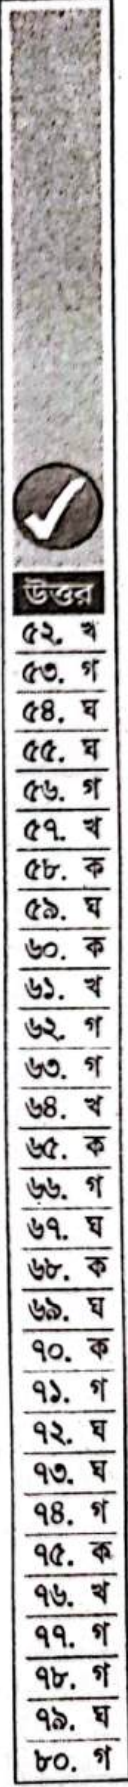 উত্তর
৫২. খ
৫৩. গ
৫৪. ঘ
৫৫. ঘ
৫৬. গ
৫৭. খ
৫৮. ক
৫৯. ঘ
৬০. ক
৬১. খ
৬২. গ
৬৩. গ
৬৪. খ
৬৫. ক
৬৬. গ
৬৭. ঘ
৬৮. ক
৬৯. ঘ
৭০. ক
৭১. গ
৭২. ঘ
৭৩. ঘ
৭৪. গ
৭৫. ক
৭৬. খ
৭৭. গ
৭৮. গ
৭৯. ঘ
৮০. গ